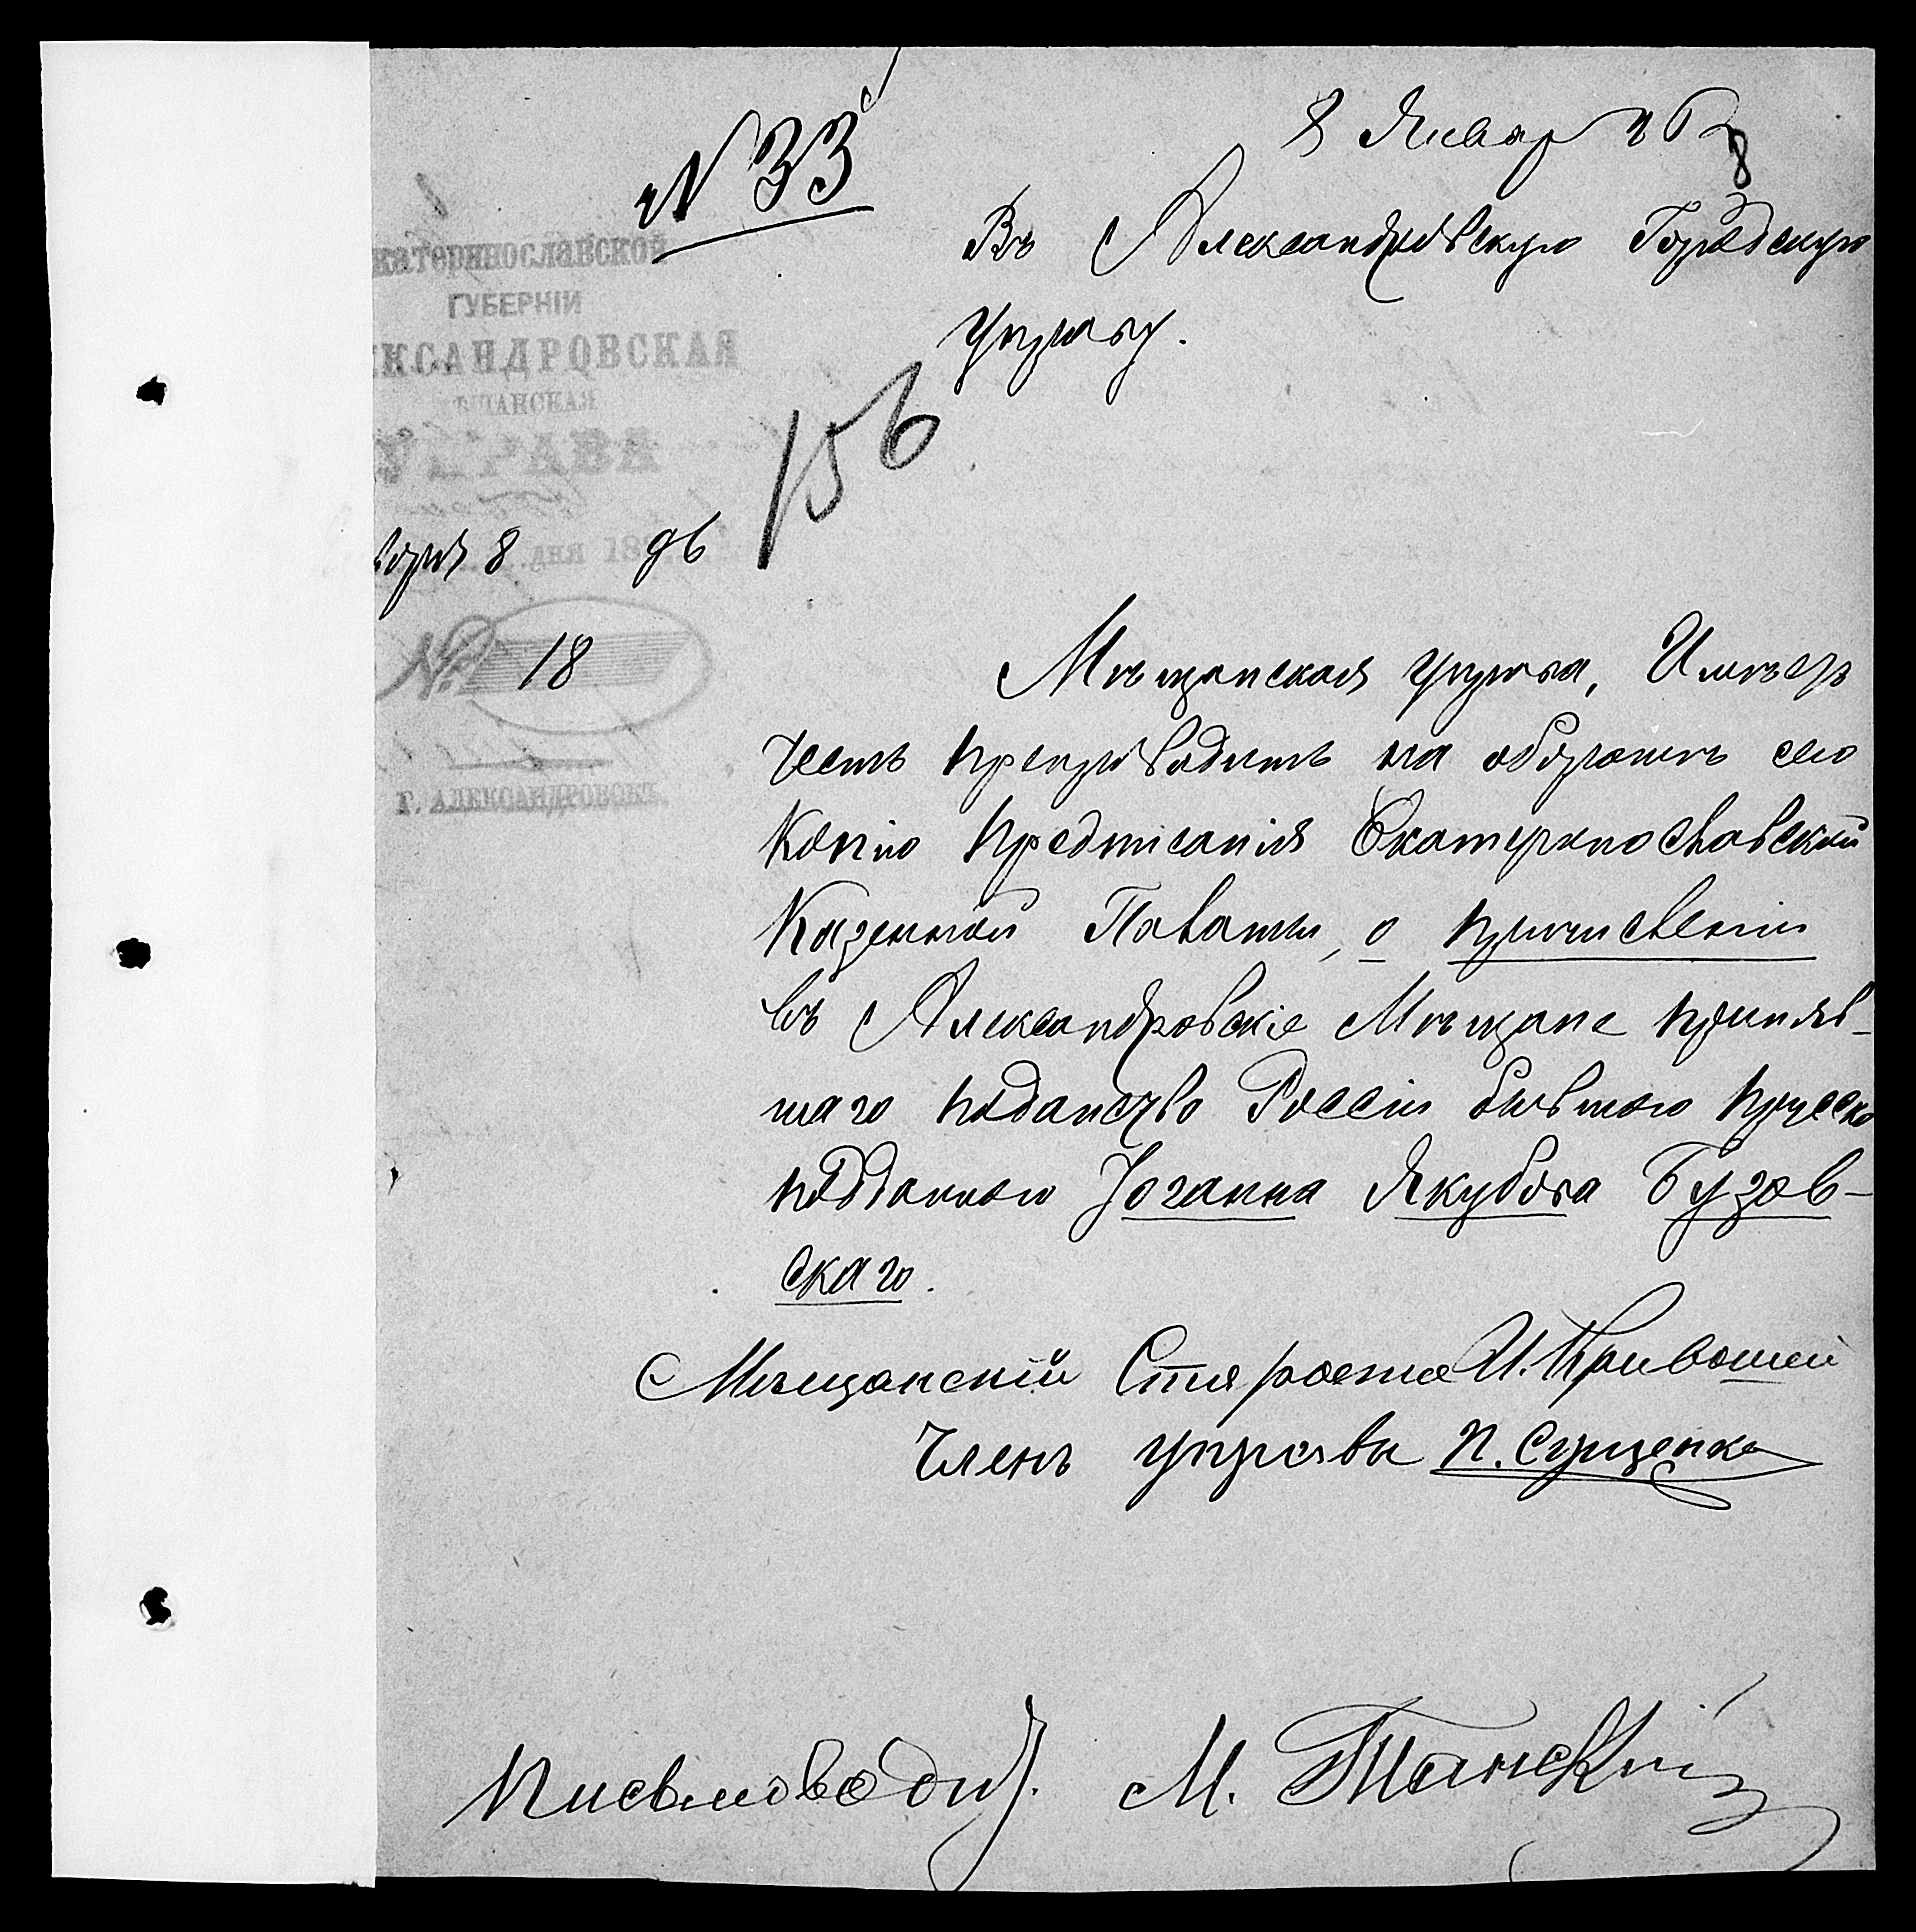 № 33
8 Январ 96
8
Въ Александровскую Городскую
Управу.
катеринославской
ГУБЕРНІИ
ЕКСАНДРОВСКАЯ
ЩАНСКАЯ
УПРАВА
156
8 дня 1896
№ 18
Г. АЛЕКСАНДРОВСКЪ.
Мѣщанская управа, Имѣетъ
честь препроводить на оборотѣ сего
Копію предписанія Екатеринославской
Казенной Палаты, о причисленіи
въ Александровскіе Мѣщане приняв-
шаго поданство Россіи бывшаго прусска
подданнаго Іоганна Якубова Бузов-
скаго.
Мѣщанскій Староста И. Кривошей
Членъ управы П. Сущенко
Письмоводит. М. Танскій